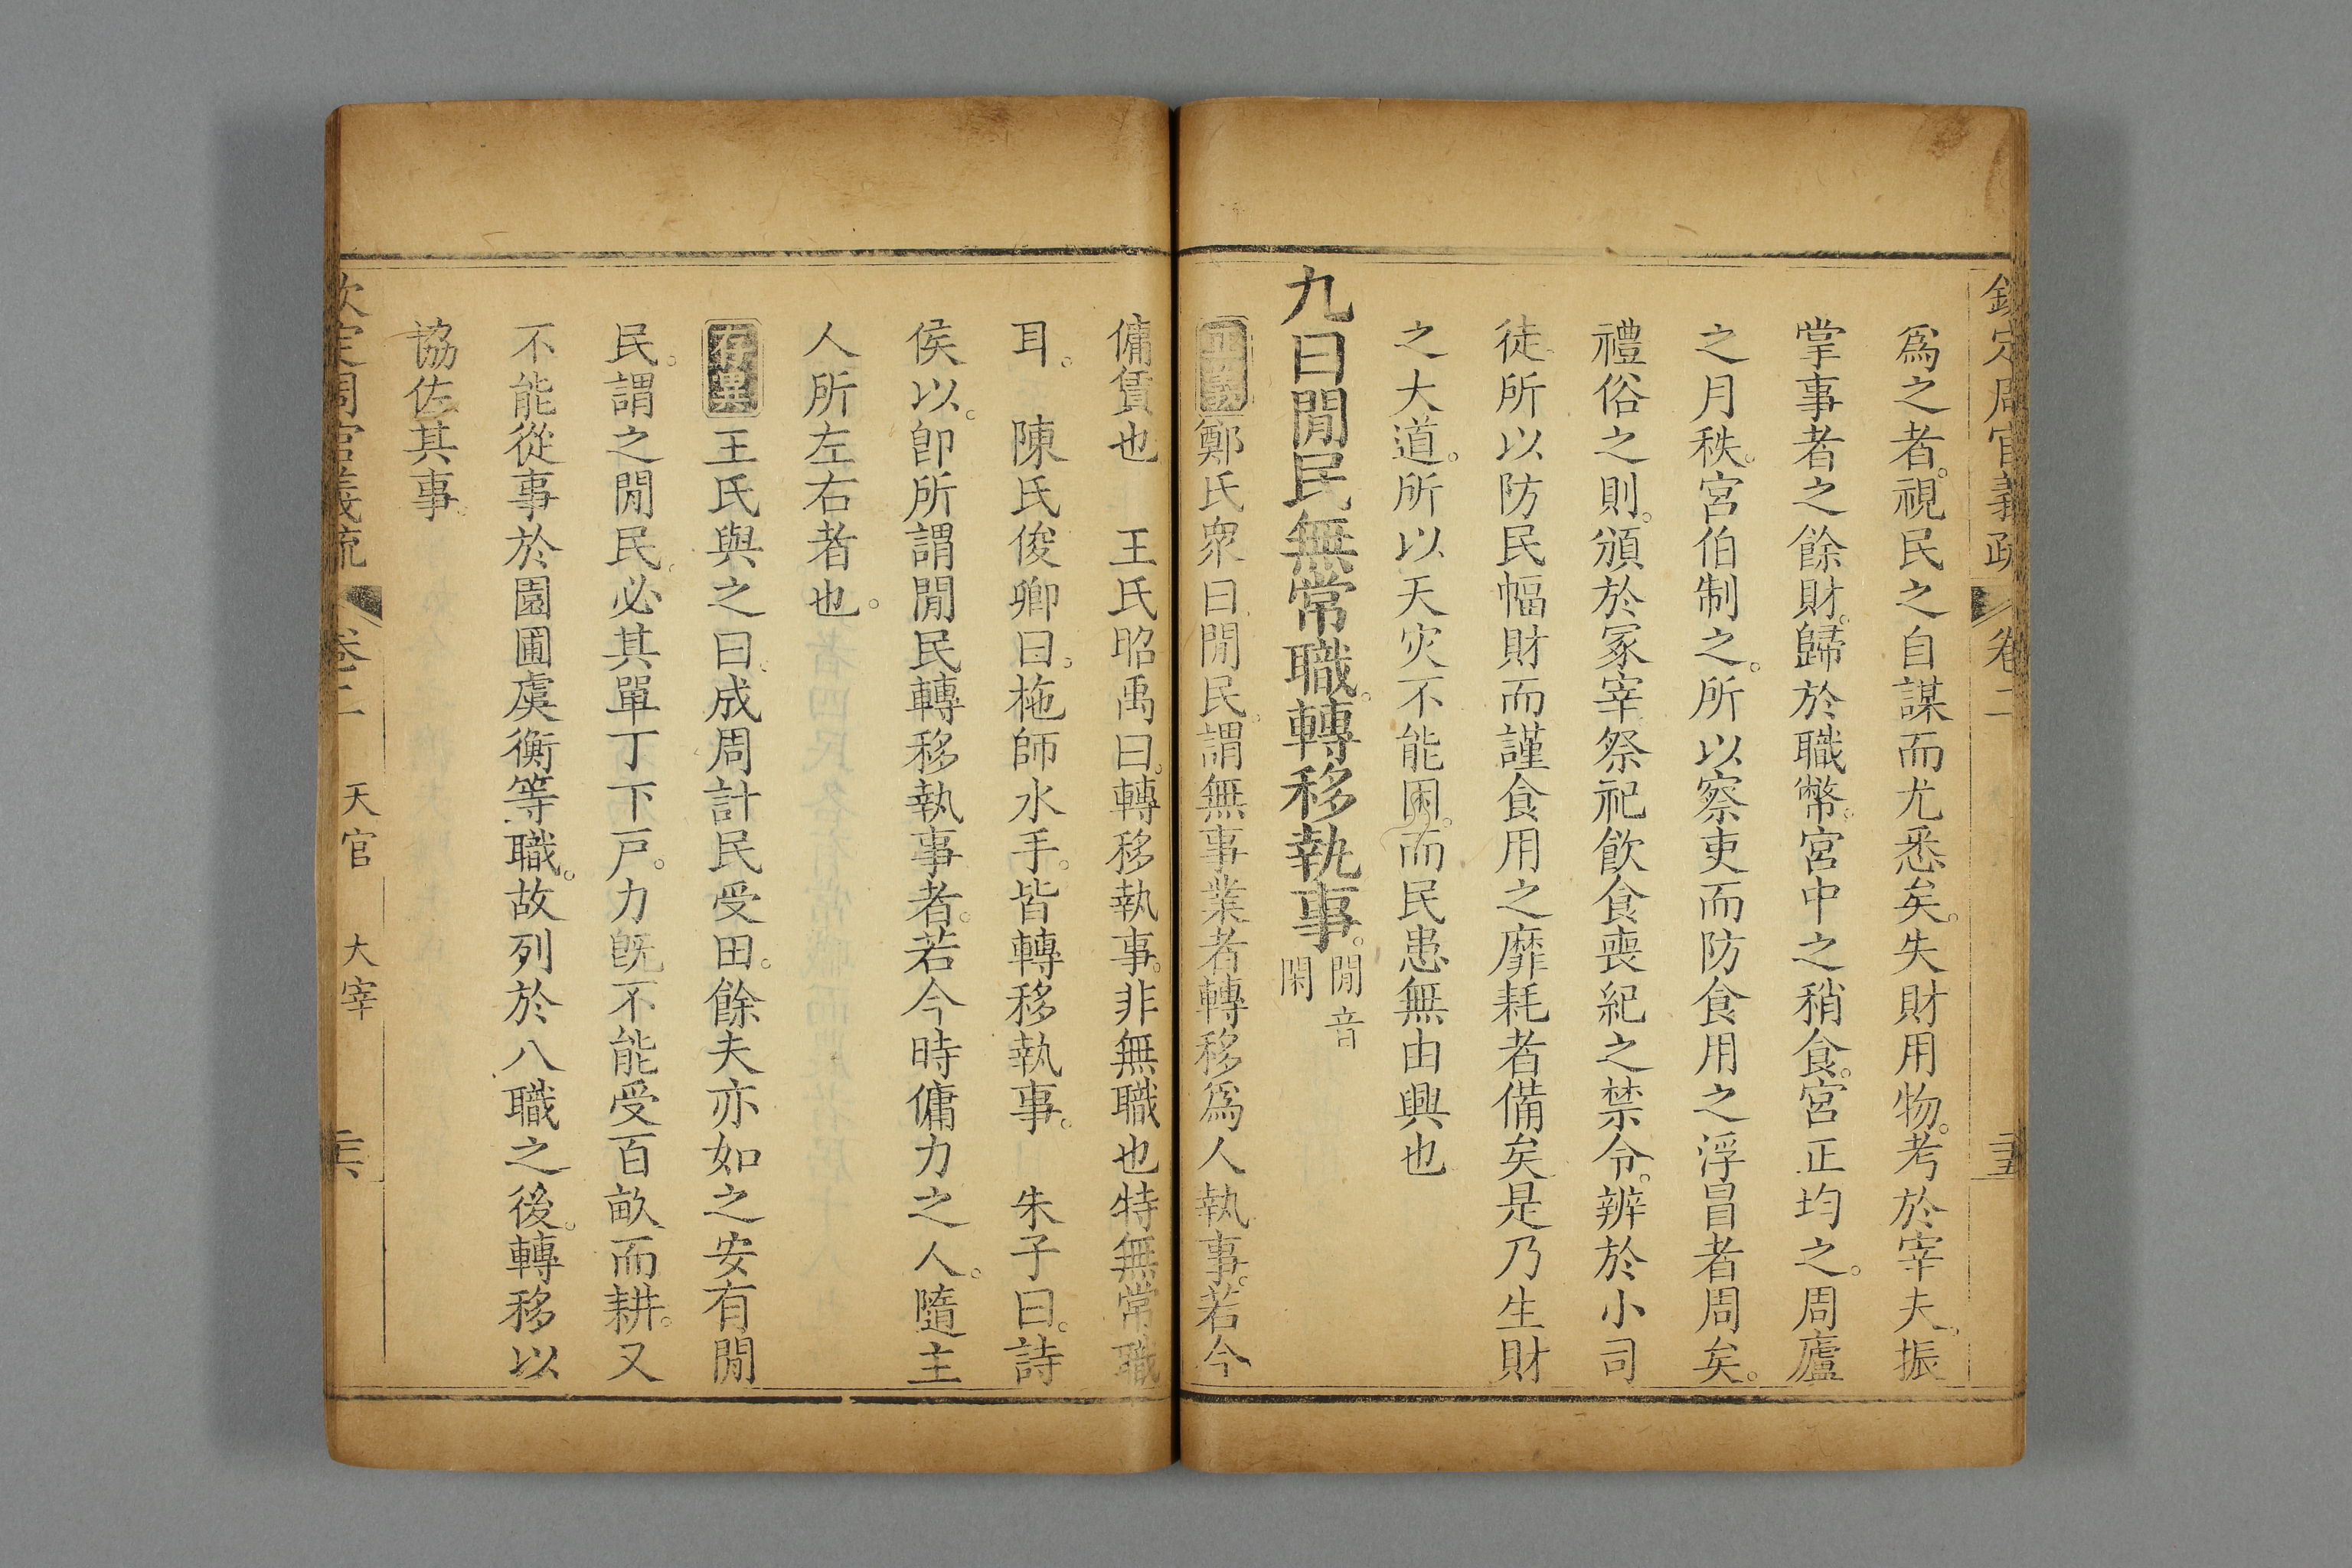 欽定周官義疏 卷二 二十五
爲之者。視民之自謀而尤悉矣。失財用物。考於宰夫。振
掌事者之餘財。歸於職幣。宮中之稍食。宮正均之。周廬
之月秩。宮伯制之。所以察吏而防食用之浮冒者周矣。
禮俗之則。頒於冢宰祭祀飲食喪紀之禁令。辨於小司
徒所以防民幅財而謹食用之靡耗者備矣是乃生財
之大道。所以天灾不能困。而民患無由興也
九曰閒民無常職。轉移執事。閒音閑
正義鄭氏眾曰閒民。謂無事業者轉移爲人執事。若今
傭賃也 王氏昭禹曰。轉移執事。非無職也特無常職
耳。 陳氏俊卿曰。柂師水手。皆轉移執事。 朱子曰。詩
侯以。卽所謂閒民轉移執事者。若今時傭力之人。隨主
人所左右者也。
存異王氏與之曰。成周計民受田。餘夫亦如之安有閒
民。謂之閒民。必其單丁下戸。力旣不能受百畝而耕。又
不能從事於園圃虞衡等職。故列於八職之後。轉移以
協佐其事。
欽定周官義疏 卷二 天官 大宰 二十六